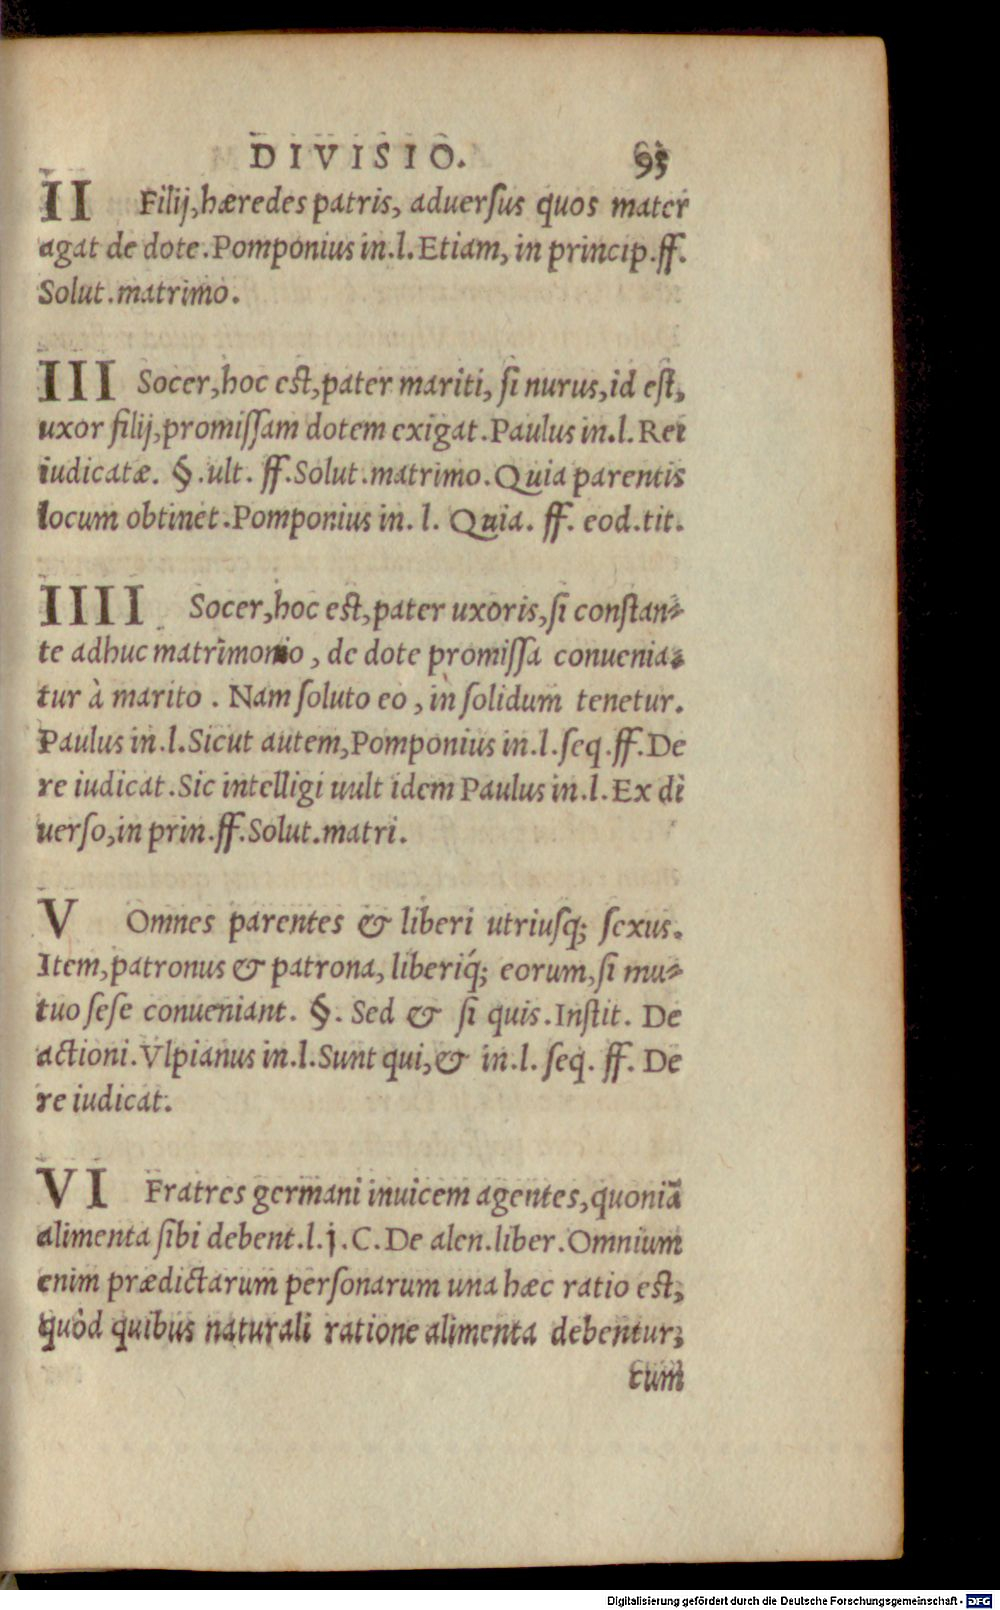 DIVISIO. 95
II Filij, hæredes patris, aduersus quos mater
agat de dote. Pomponius in.l. Etiam, in princip. ff.
Solut. matrimo.
III Socer, hoc est, pater mariti, si nurus, id est,
uxor filij, promissam dotem exigat. Paulus in.l. Rei
iudicatæ. §. ult. ff. Solut. matrimo. Quia parentis
locum obtinet. Pomponius in. l. Quia. ff. eod. tit.
IIII Socer, hoc est, pater uxoris, si constan-
te adhuc matrimonio, de dote promissa conuenia-
tur à marito. Nam soluto eo, in solidum tenetur.
Paulus in.l. Sicut autem, Pomponius in.l. seq. ff. De
re iudicat. Sic intelligi uult idem Paulus in.l. Ex di
uerso, in prin. ff. Solut. matri.
V Omnes parentes & liberi utriusq; sexus.
Item, patronus & patrona, liberiq́; eorum, si mu-
tuo sese conueniant. §. Sed & si quis. Instit. De
actioni. Vlpianus in.l. Sunt qui, & in.l. seq. ff. De
re iudicat.
VI Fratres germani inuicem agentes, quoniã
alimenta sibi debent. l. j. C. De alen. liber. Omnium
enim prædictarum personarum una hæc ratio est,
quòd quibus naturali ratione alimenta debentur,
cum
Digitalisierung gefördert durch die Deutsche Forschungsgemeinschaft - DFG